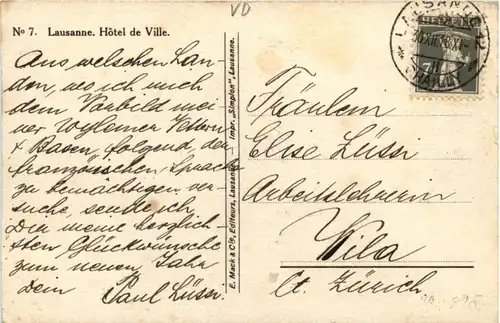 VD
No 7. Lausanne. Hôtel de Ville.
Aus welschen Lan-
den, wo ich mich
dem Vorbild mei-
ner Wylemer Vettern
& Basen, folgend, der
französischen Sprache
zu bemächtigen ver-
suche, sende ich
Dir meine herzlich-
sten Glückwünsche
zum neuen Jahr
Dein
Paul Lüssi.
E. Mack & Cie, Editeurs, Lausanne. Impr. „Simplon“, Lausanne.
LAUSANNE
HELVETIA
Fräulein
Elise Lüssi
Arbeitslehrerin
Wila
Ct. Zürich